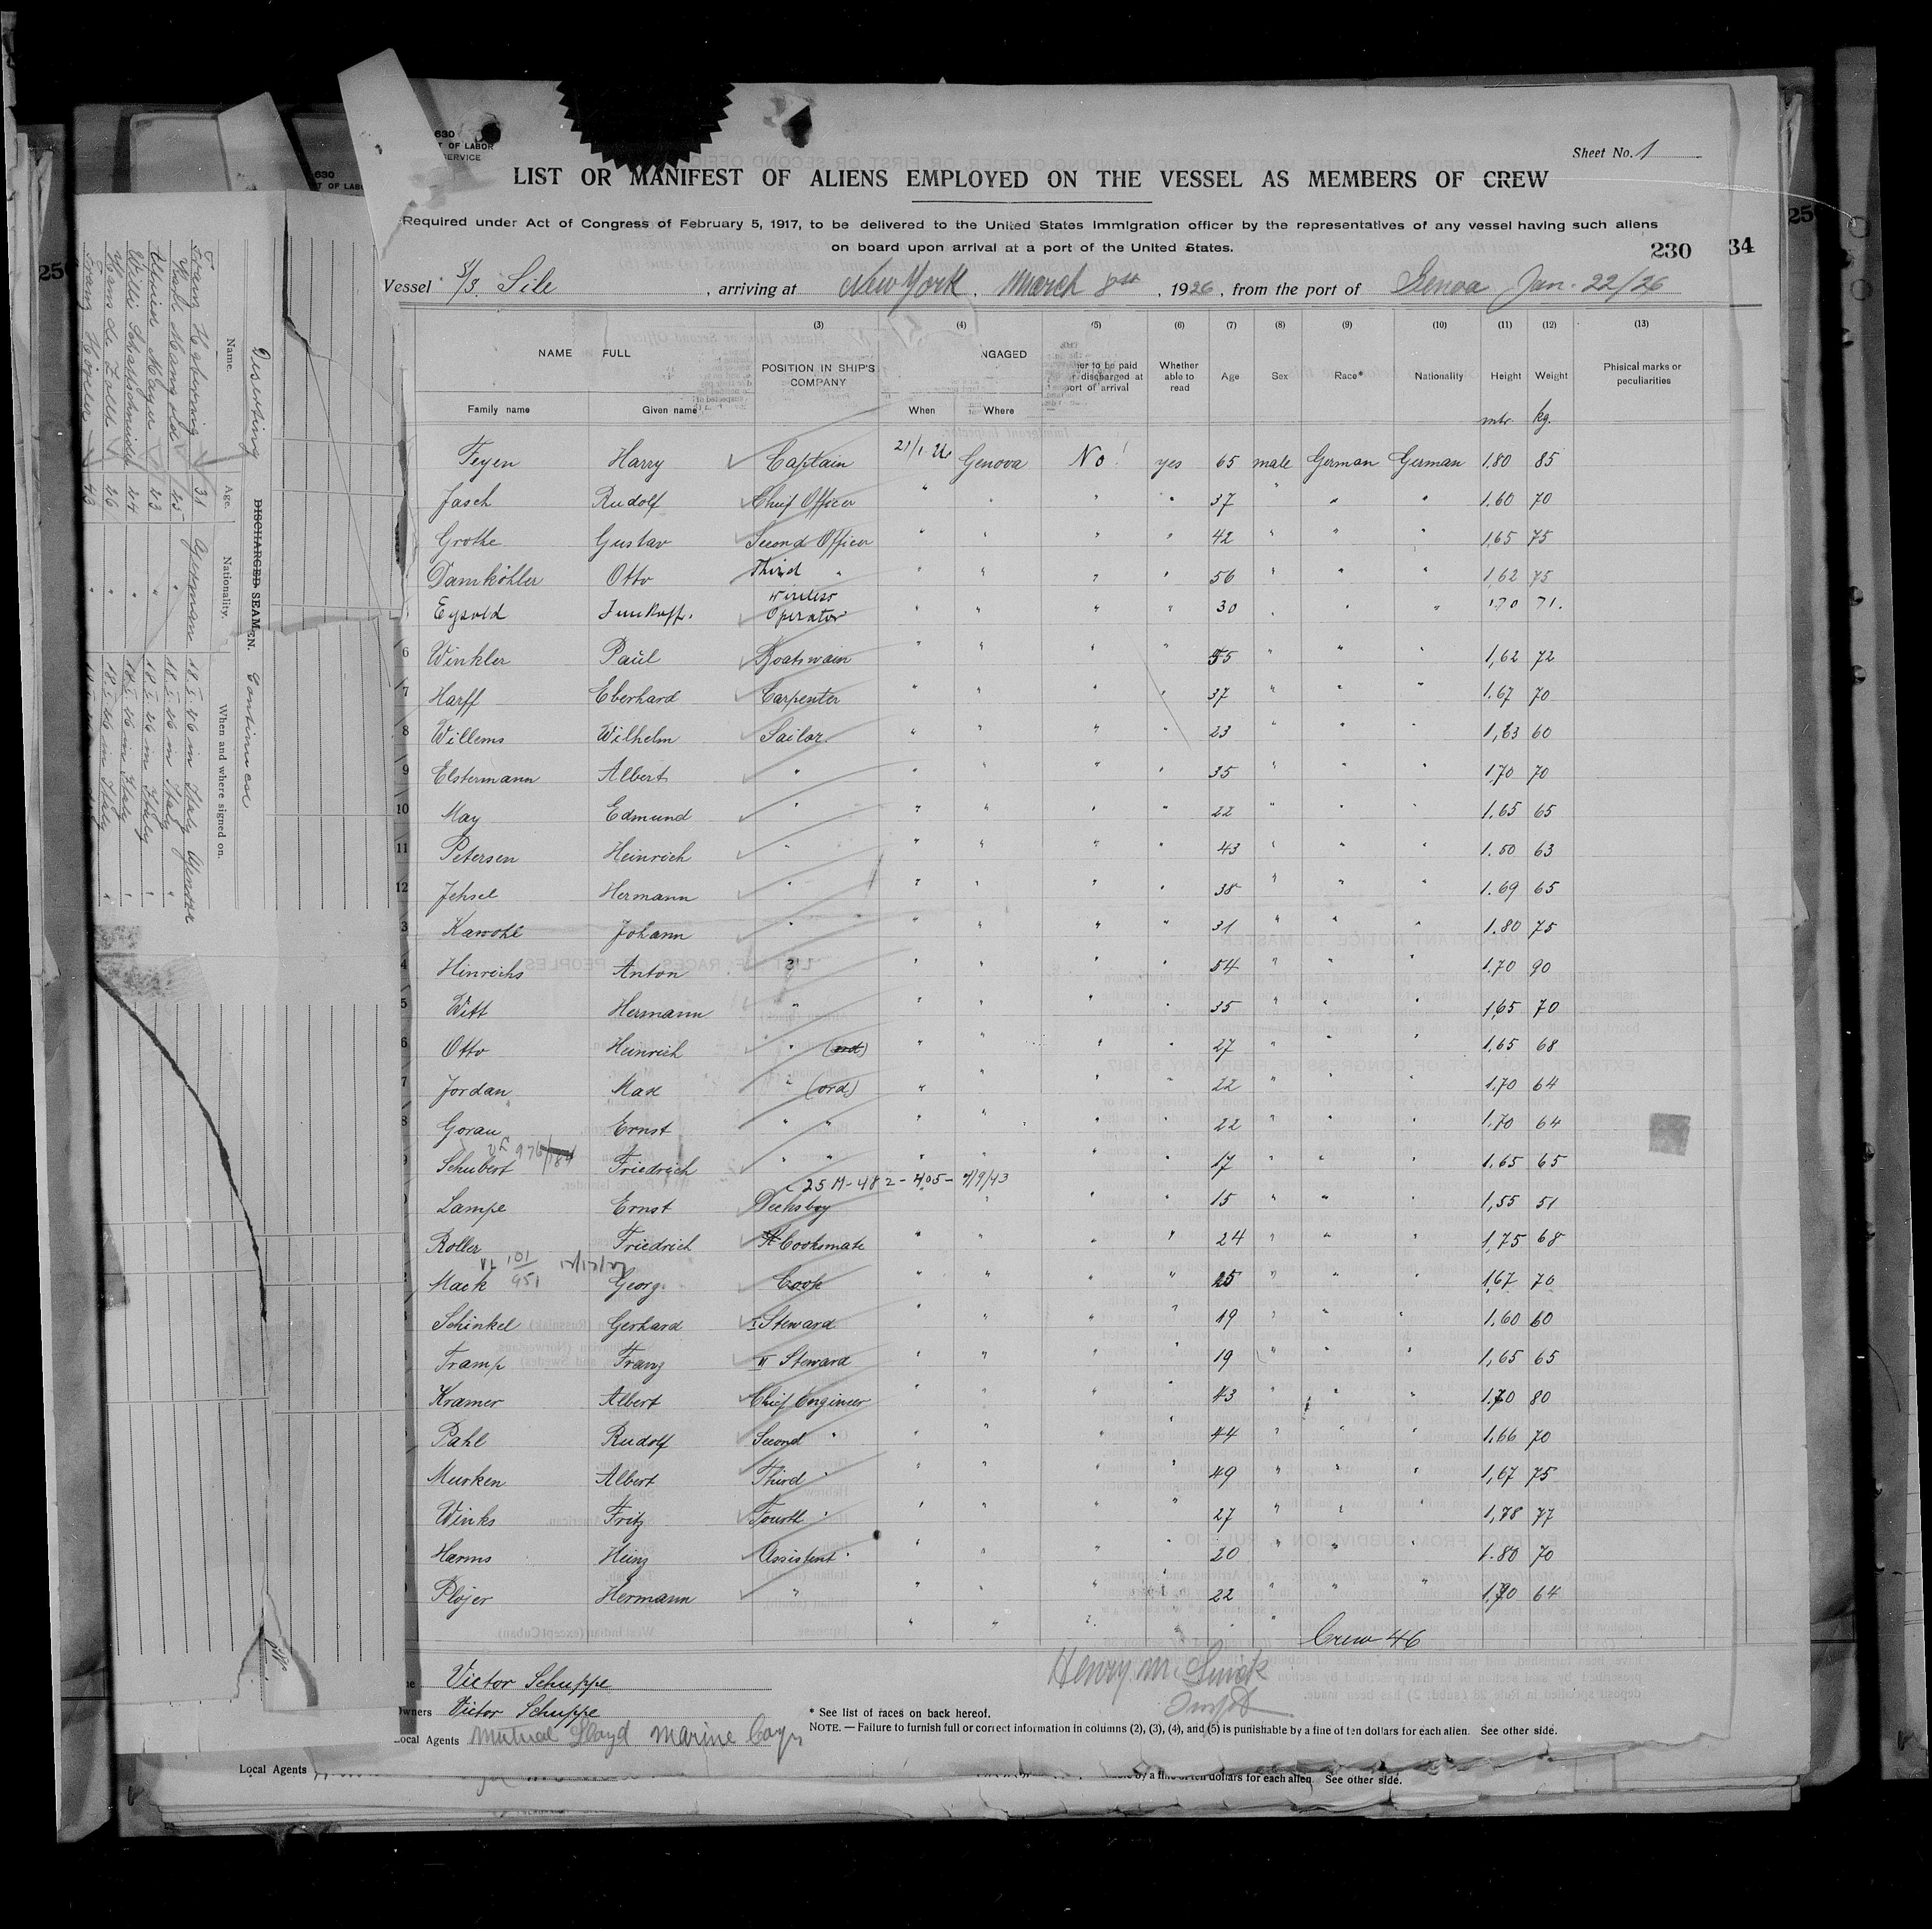 630
T OF LABOR
SERVICE
Sheet No. 1
LIST OR MANIFEST OF ALIENS EMPLOYED ON THE VESSEL AS MEMBERS OF CREW
Required under Act of Congress of February 5, 1917, to be delivered to the United States Immigration officer by the representatives of any vessel having such aliens
on board upon arrival at a port of the United States.
230 34
Vessel S/S. Sile, arriving at New York, March 8th, 1926, from the port of Genoa Jan. 22/26
(3) (4) (5) (6) (7) (8) (9) (10) (11) (12) (13)
NAME FULL POSITION IN SHIP'S COMPANY NGAGED Whether able to read Age Sex Race* Nationality Height Weight Phisical marks or peculiarities
Family name Given name When Where mtr. kg.
Feyen Harry Captain 21/1 26 Genova No! yes 65 male German German 1.80 85
Jasch Rudolf Chief Officer " " " " 37 " " " 1.60 70
Grothe Gustav Second Officer " " " " 42 " " " 1,65 75
Damköhler Otto Third " " " " " 56 " " " 1,62 75
Eysold wireless Operator " " " " 30 " " " 1.70 71.
6 Winkler Paul Boatswain " " " " 55 " " " 1,62 72
7 Harff Eberhard Carpenter " " " " 37 " " " 1.67 70
8 Willems Wilhelm Sailor " " " 23 " " " 1,63 60
9 Elstermann Albert " " " " " 35 " " " 1,70 70
10 May Edmund " " " " " 22 " " " 1.65 65
11 Petersen Heinrich " " " " " 43 " " " 1.50 63
12 Jehsel Hermann " " " " " 38 " " " 1.69 65
3 Kawohl Johann " " " " " 31 " " " 1.80 75
4 Hinrichs Anton " " " " " 54 " " " 1.70 90
5 Witt Hermann " " " " " 35 " " " 1,65 70
6 Otto Heinrich " (ord) " " " " 27 " " " 1,65 68
7 Jordan Max " (ord.) " " " " 22 " " " 1,70 64
8 Gorau Ernst " " " " " " 22 " " " 1.70 64
9 Schubert Friedrich " " " " " " 17 " " " 1.65 65
25 M-482-405-7/9/43
Lampe Ernst Decksboy " " 15 " " " 1,55 51
Roller Friedrich Cooksmate " " " " 24 " " " 1,75 68
Mack Georg. Cook " " " " 25 " " " 1,67 70
Schinkel Gerhard I Steward " " " " 19 " " " 1,60 60
Tramp Franz II Steward " " " " 19 " " " 1,65 65
Kramer Albert Chief Engineer " " " " 43 " " " 1.70 80
Pahl Rudolf Second " " " " " 44 " " " 1.66 70
Murken Albert Third " " " " " 49 " " " 1,67 75
Winks Fritz Fourth " " " " " 27 " " " 1,78 77
Harms Heinz Assistent " " " " " 20 " " " 1.80 70
Plöjer Hermann " " " " " 22 " " " 1,70 64
Crew 46
Victor Schuppe
Owners Victor Schuppe
Local Agents Mutual Lloyd Marine
* See list of races on back hereof.
NOTE. — Failure to furnish full or correct information in columns (2), (3), (4), and (5) is punishable by a fine of ten dollars for each alien. See other side.
Local Agents
by a fine of ten dollars for each alien. See other side.
Deserting
DISCHARGED SEAMEN. Continued
Name. Age. Nationality. When and where signed on.
Franz Hartwig 31 German 18.5.26 in Italy
Karl Mangold 25 " 18.5.26 in Italy "
Alfried Mayer 23 " 18.5.26 in Italy "
Willi Schallschmidt 24 " 18.5.26 in Italy "
Hans de Zolle 26 " 18.5.26 in Italy "
Franz 43 "